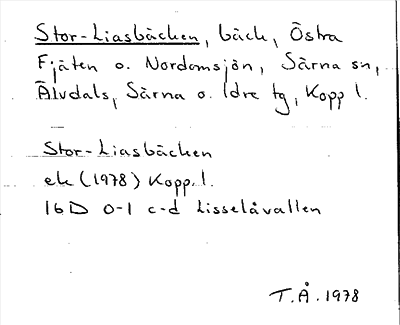 Stor-Liasbäcken, bäck, Östra
Fjäten o. Nordomsjön, Särna sn,
Älvdals, Särna o. Idre tg, Kopp l.
Stor-Liasbäcken
ek (1978) Kopp. l.
16D 0-1 c-d Lisselåvallen
T.Å. 1978